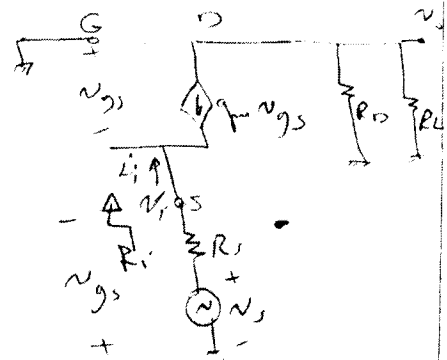 G D v
+
v_gs g_m v_gs R_D R_L
-
i_i v_i S
-
R_i R_s
v_gs + v_s
+ -